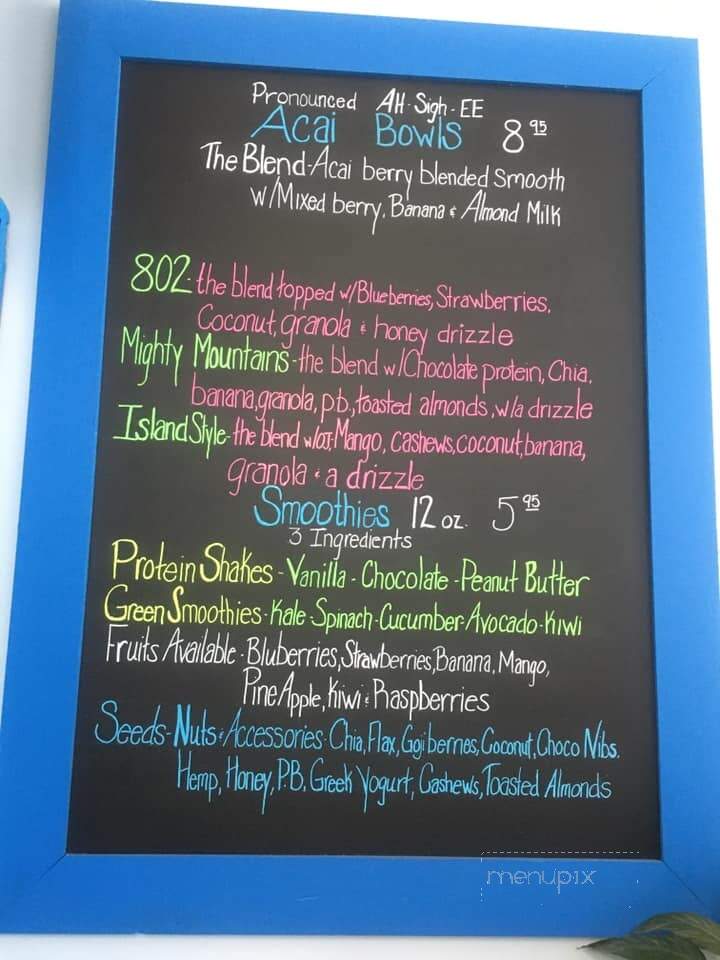 Pronounced AH-Sigh-EE
Acai Bowls 8 95
The Blend-Acai berry blended smooth
w/Mixed berry, Banana & Almond Milk
802-the blend topped w/Blueberries, Strawberries,
Coconut, granola & honey drizzle
Mighty Mountains-the blend w/Chocolate protein, Chia,
banana, granola, p.b, toasted almonds, w/a drizzle
Island Style-the blend w/OJ, Mango, cashews, coconut, banana,
granola & a drizzle
Smoothies 12 oz. 5 95
3 Ingredients
Protein Shakes-Vanilla-Chocolate-Peanut Butter
Green Smoothies-Kale-Spinach-Cucumber-Avocado-Kiwi
Fruits Available-Bluberries, Strawberries, Banana, Mango,
PineApple, Kiwi & Raspberries
Seeds-Nuts & Accessories-Chia, Flax, Goji berries, Coconut, Choco Nibs.
Hemp, Honey, P.B. Greek Yogurt, Cashews, Toasted Almonds
menupix